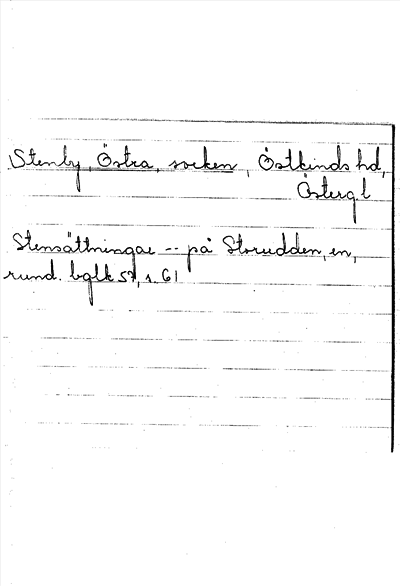 Stenby, Östra, socken, Östkinds hd,
Österg.l
Stensättningar -- på Storudden, en,
rund. bglk 57, s. 61